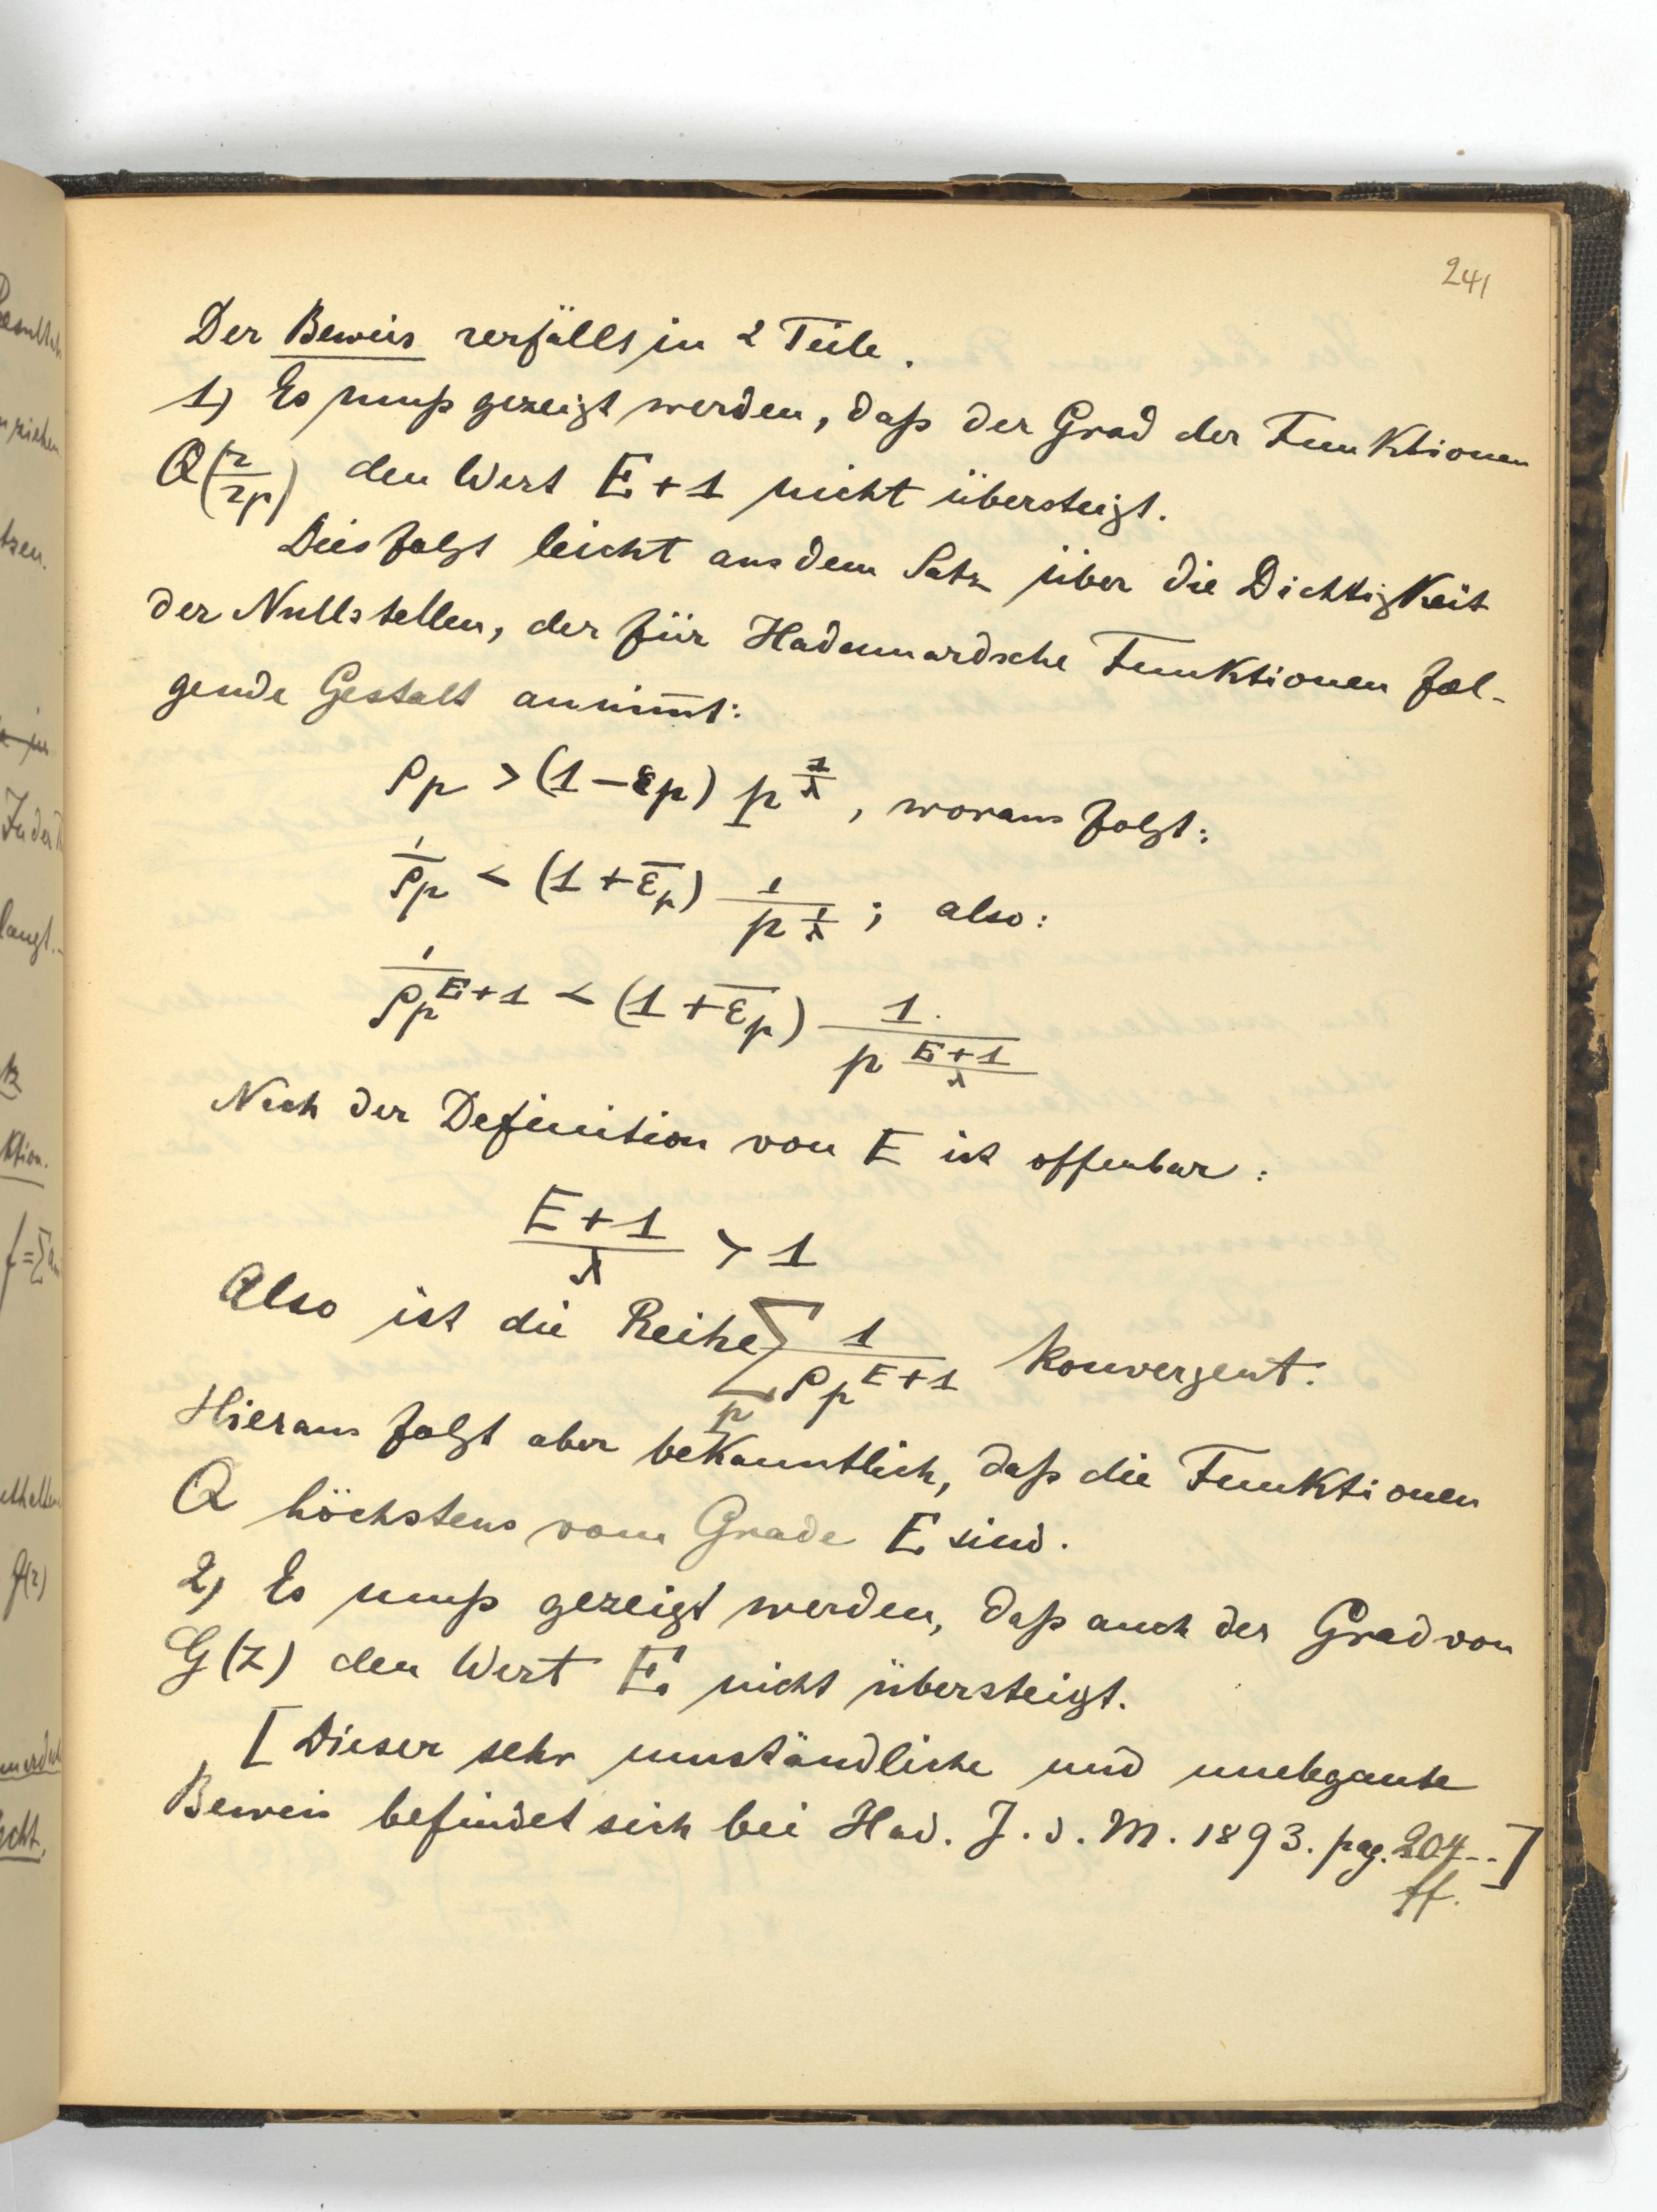 241
Der Beweis zerfällt in 2 Teile.
1) Es muß gezeigt werden, daß der Grad der Funktionen
Q(z/zp) den Wert E+1 nicht übersteigt.
Dies folgt leicht aus dem Satz über die Dichtigkeit
der Nullstellen, der für Hadamardsche Funktionen fol-
gende Gestalt annim̅t:
ρp > (1-εp) p^(1/λ), woraus folgt:
1/ρp < (1+ε̅p) 1/p^(1/λ); also:
1/ρp^(E+1) < (1+ε̅p) 1/p^((E+1)/λ)
Nach der Definition von E ist offenbar:
(E+1)/λ > 1
Also ist die Reihe ∑p 1/ρp^(E+1) konvergent.
Hieraus folgt aber bekanntlich, daß die Funktionen
Q höchstens vom Grade E sind.
2) Es muß gezeigt werden, daß auch der Grad von
G(z) den Wert E nicht übersteigt.
[Dieser sehr umständliche und unelegante
Beweis befindet sich bei Had. J. d. M. 1893. pag. 204--]
ff.